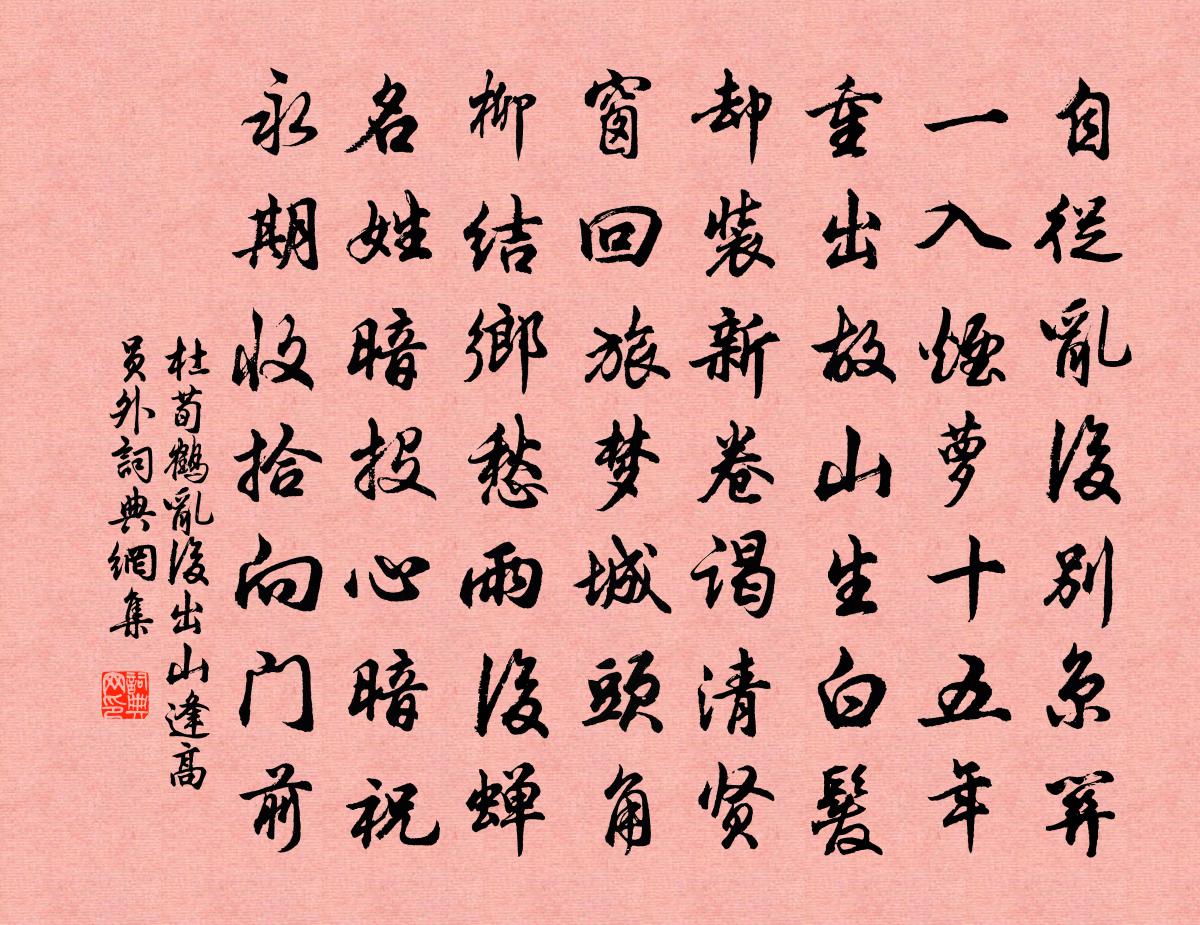 自從亂後別京關
一入煙萝十五年
重出故山生白髮
却裝新卷谒清贤
窗回旅梦城頭角
柳结鄉愁雨後蝉
名姓暗投心暗祝
永期收拾向门前
杜荀鶴亂後出山逢高
员外詞典網集
詞典网印